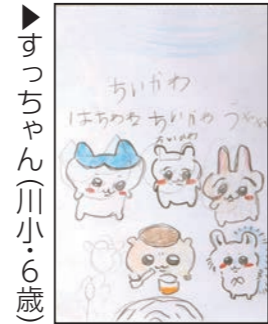 ▶すっちゃん(川小・6歳)
ちいかわ
はちわれ ちいかわ うさぎ
ちいかわ